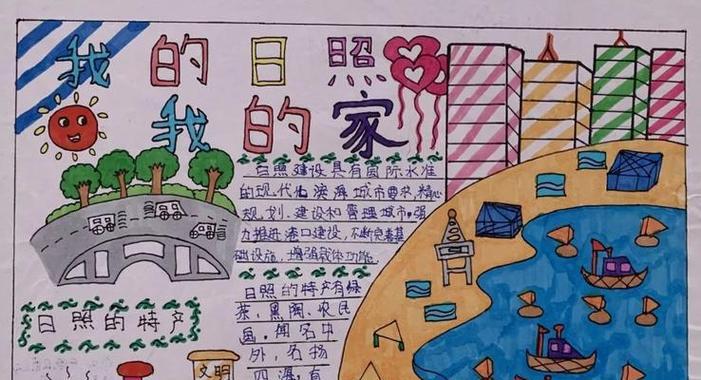 我的日照
我的家
日照建设具有国际水准
的现代化滨海城市要求,精心
规划、建设和管理城市。强
力推进港口建设,不断完善基
础设施,增强载体功能。
日照的特产
日照的特产有绿
茶,黑陶、农民
画。闻名中
外,名扬
四海,有
文明